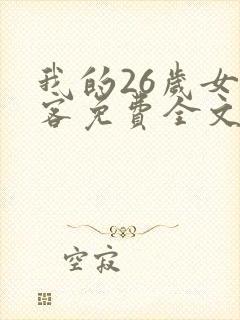 我的26歲女
客免費全文
空寂